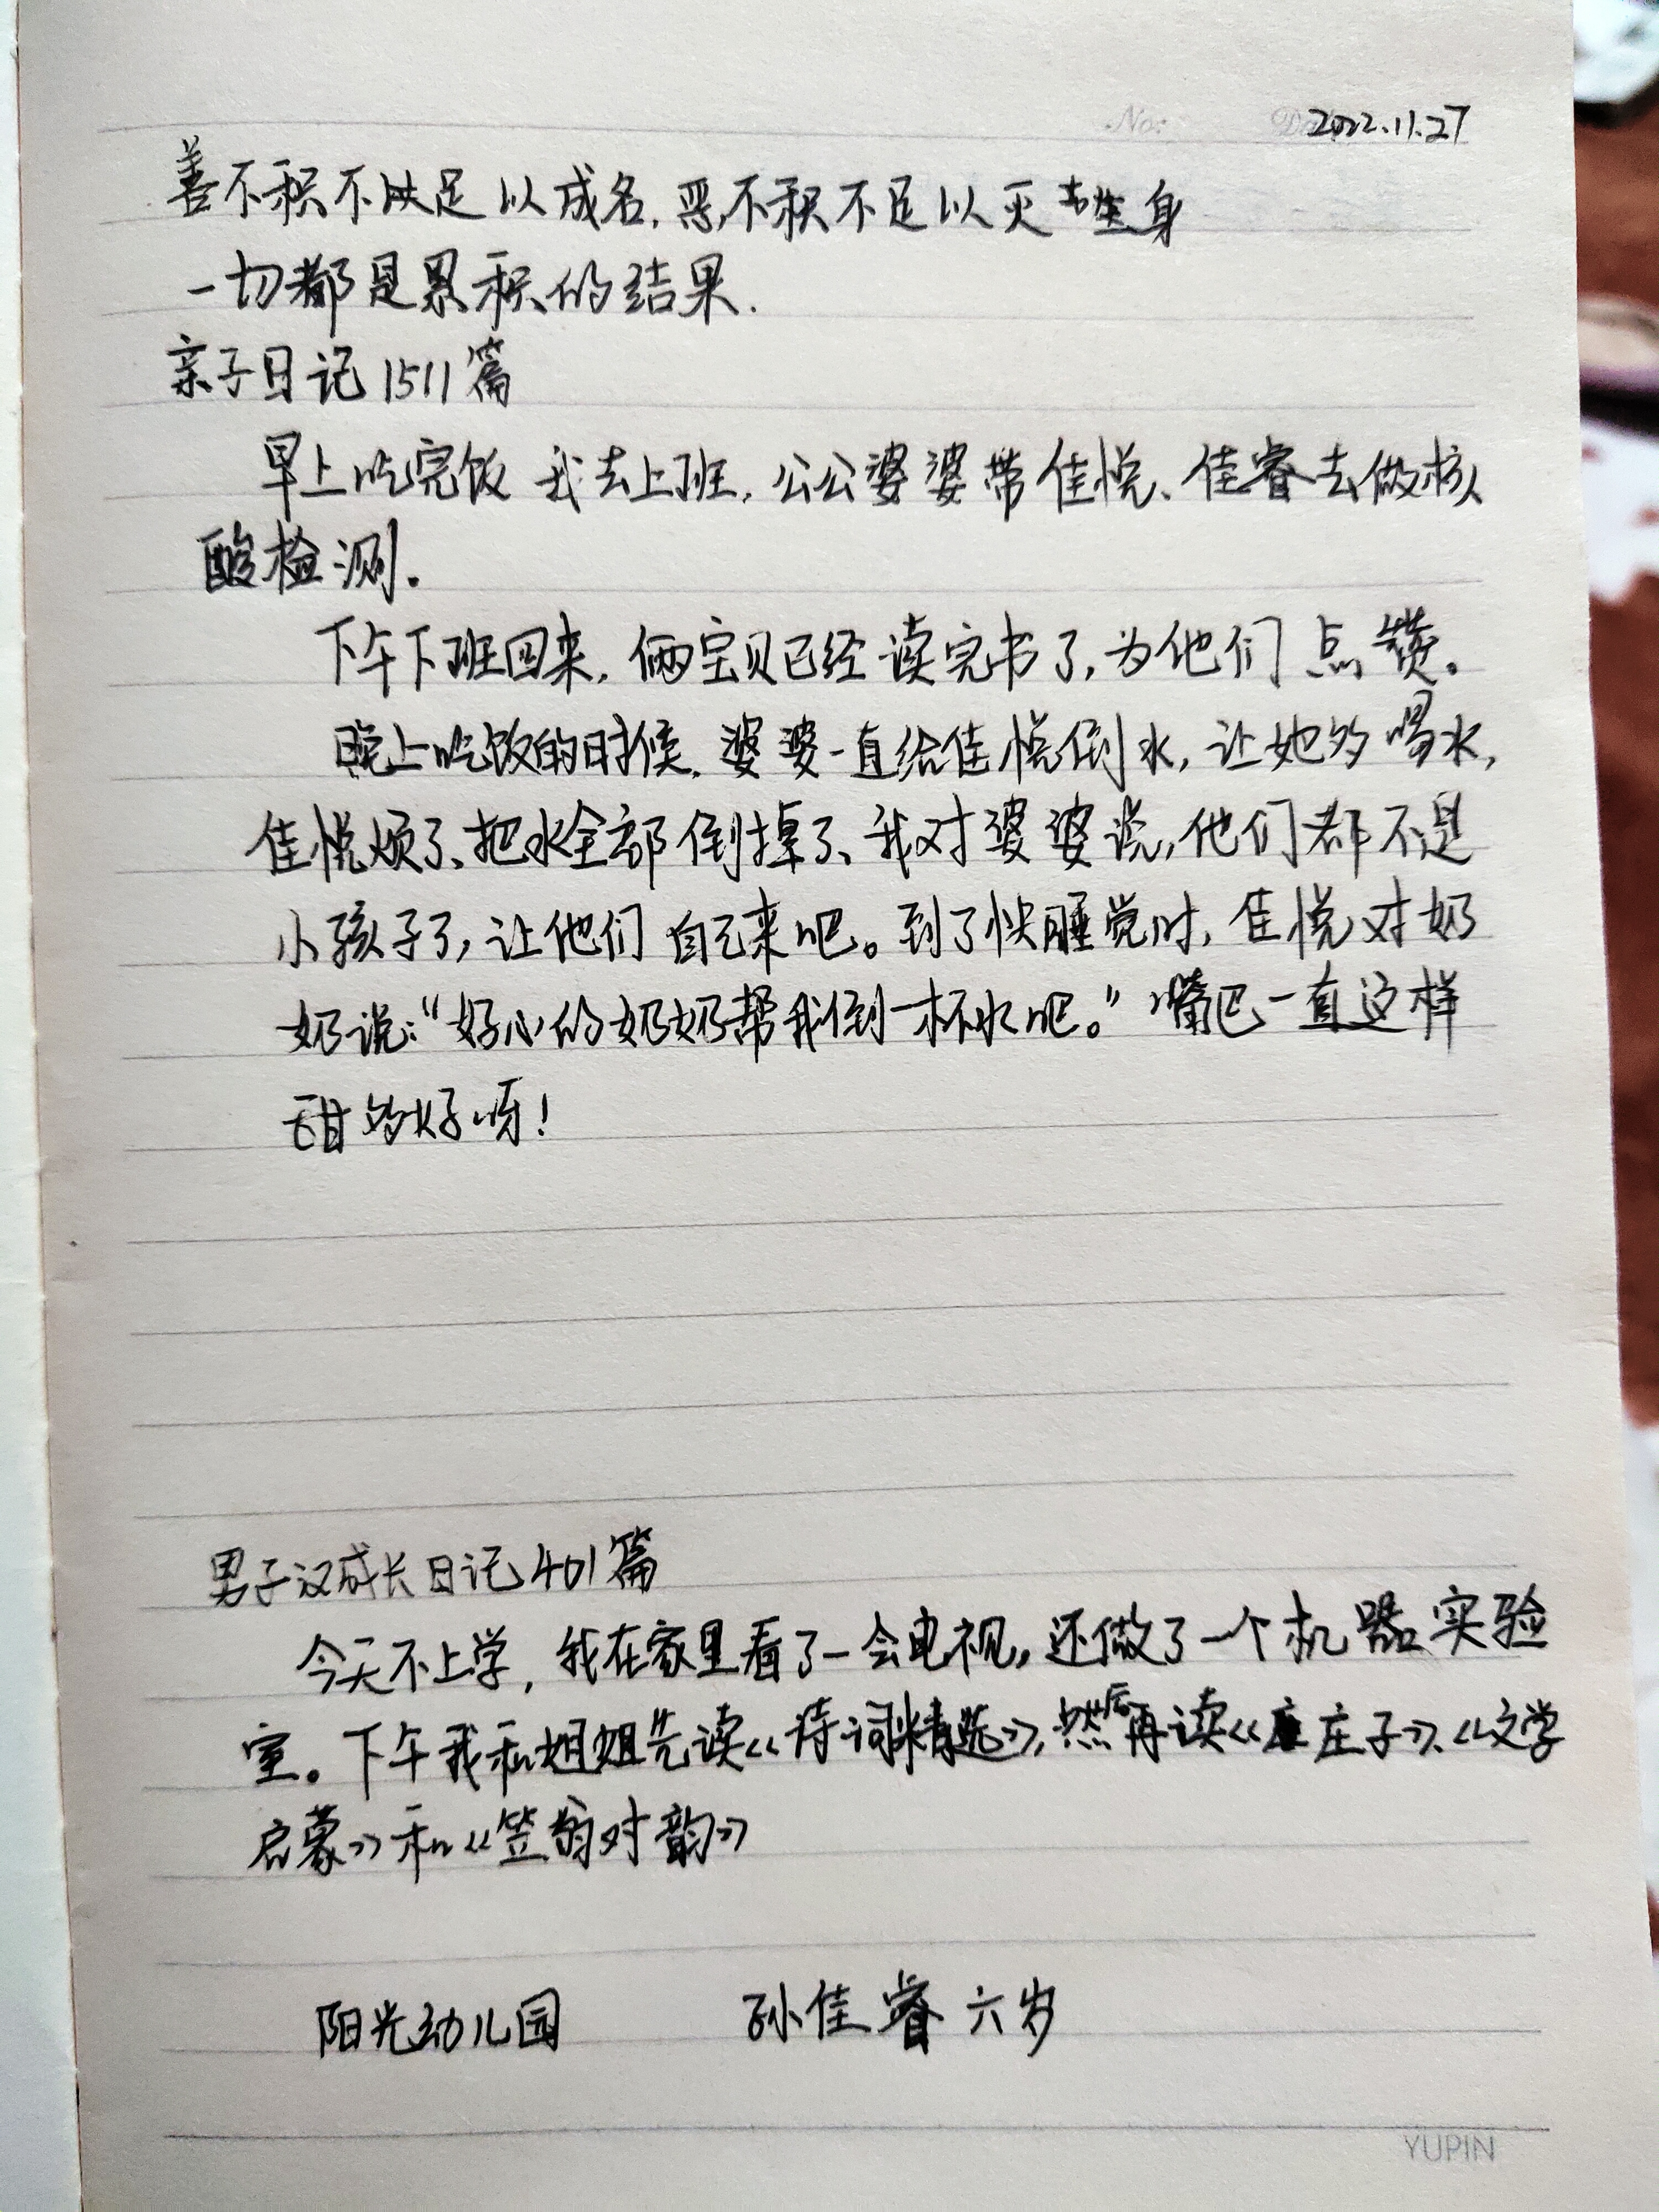 No:
2022.11.27
善不积不足以成名,恶不积不足以灭身
一切都是累积的结果.
亲子日记1511篇
早上吃完饭 我去上班,公公婆婆带佳悦、佳睿去做核
酸检测.
下午下班回来,俩宝贝已经读完书了,为他们点赞。
晚上吃饭的时候,婆婆一直给佳悦倒水,让她多喝水,
佳悦烦了、把水全部倒掉了、我对婆婆说,他们都不是
小孩子了,让他们自己来吧。到了快睡觉时,佳悦对奶
奶说:“好心的奶奶帮我倒一杯水吧。”嘴巴一直这样
甜多好呀!
男子汉成长日记401篇
今天不上学,我在家里看了一会电视,还做了一个机器实验
室。下午我和姐姐先读《诗词精选》,然后再读《庄子》、《文学
启蒙》和《笠翁对韵》
阳光幼儿园 孙佳睿 六岁
YUPIN